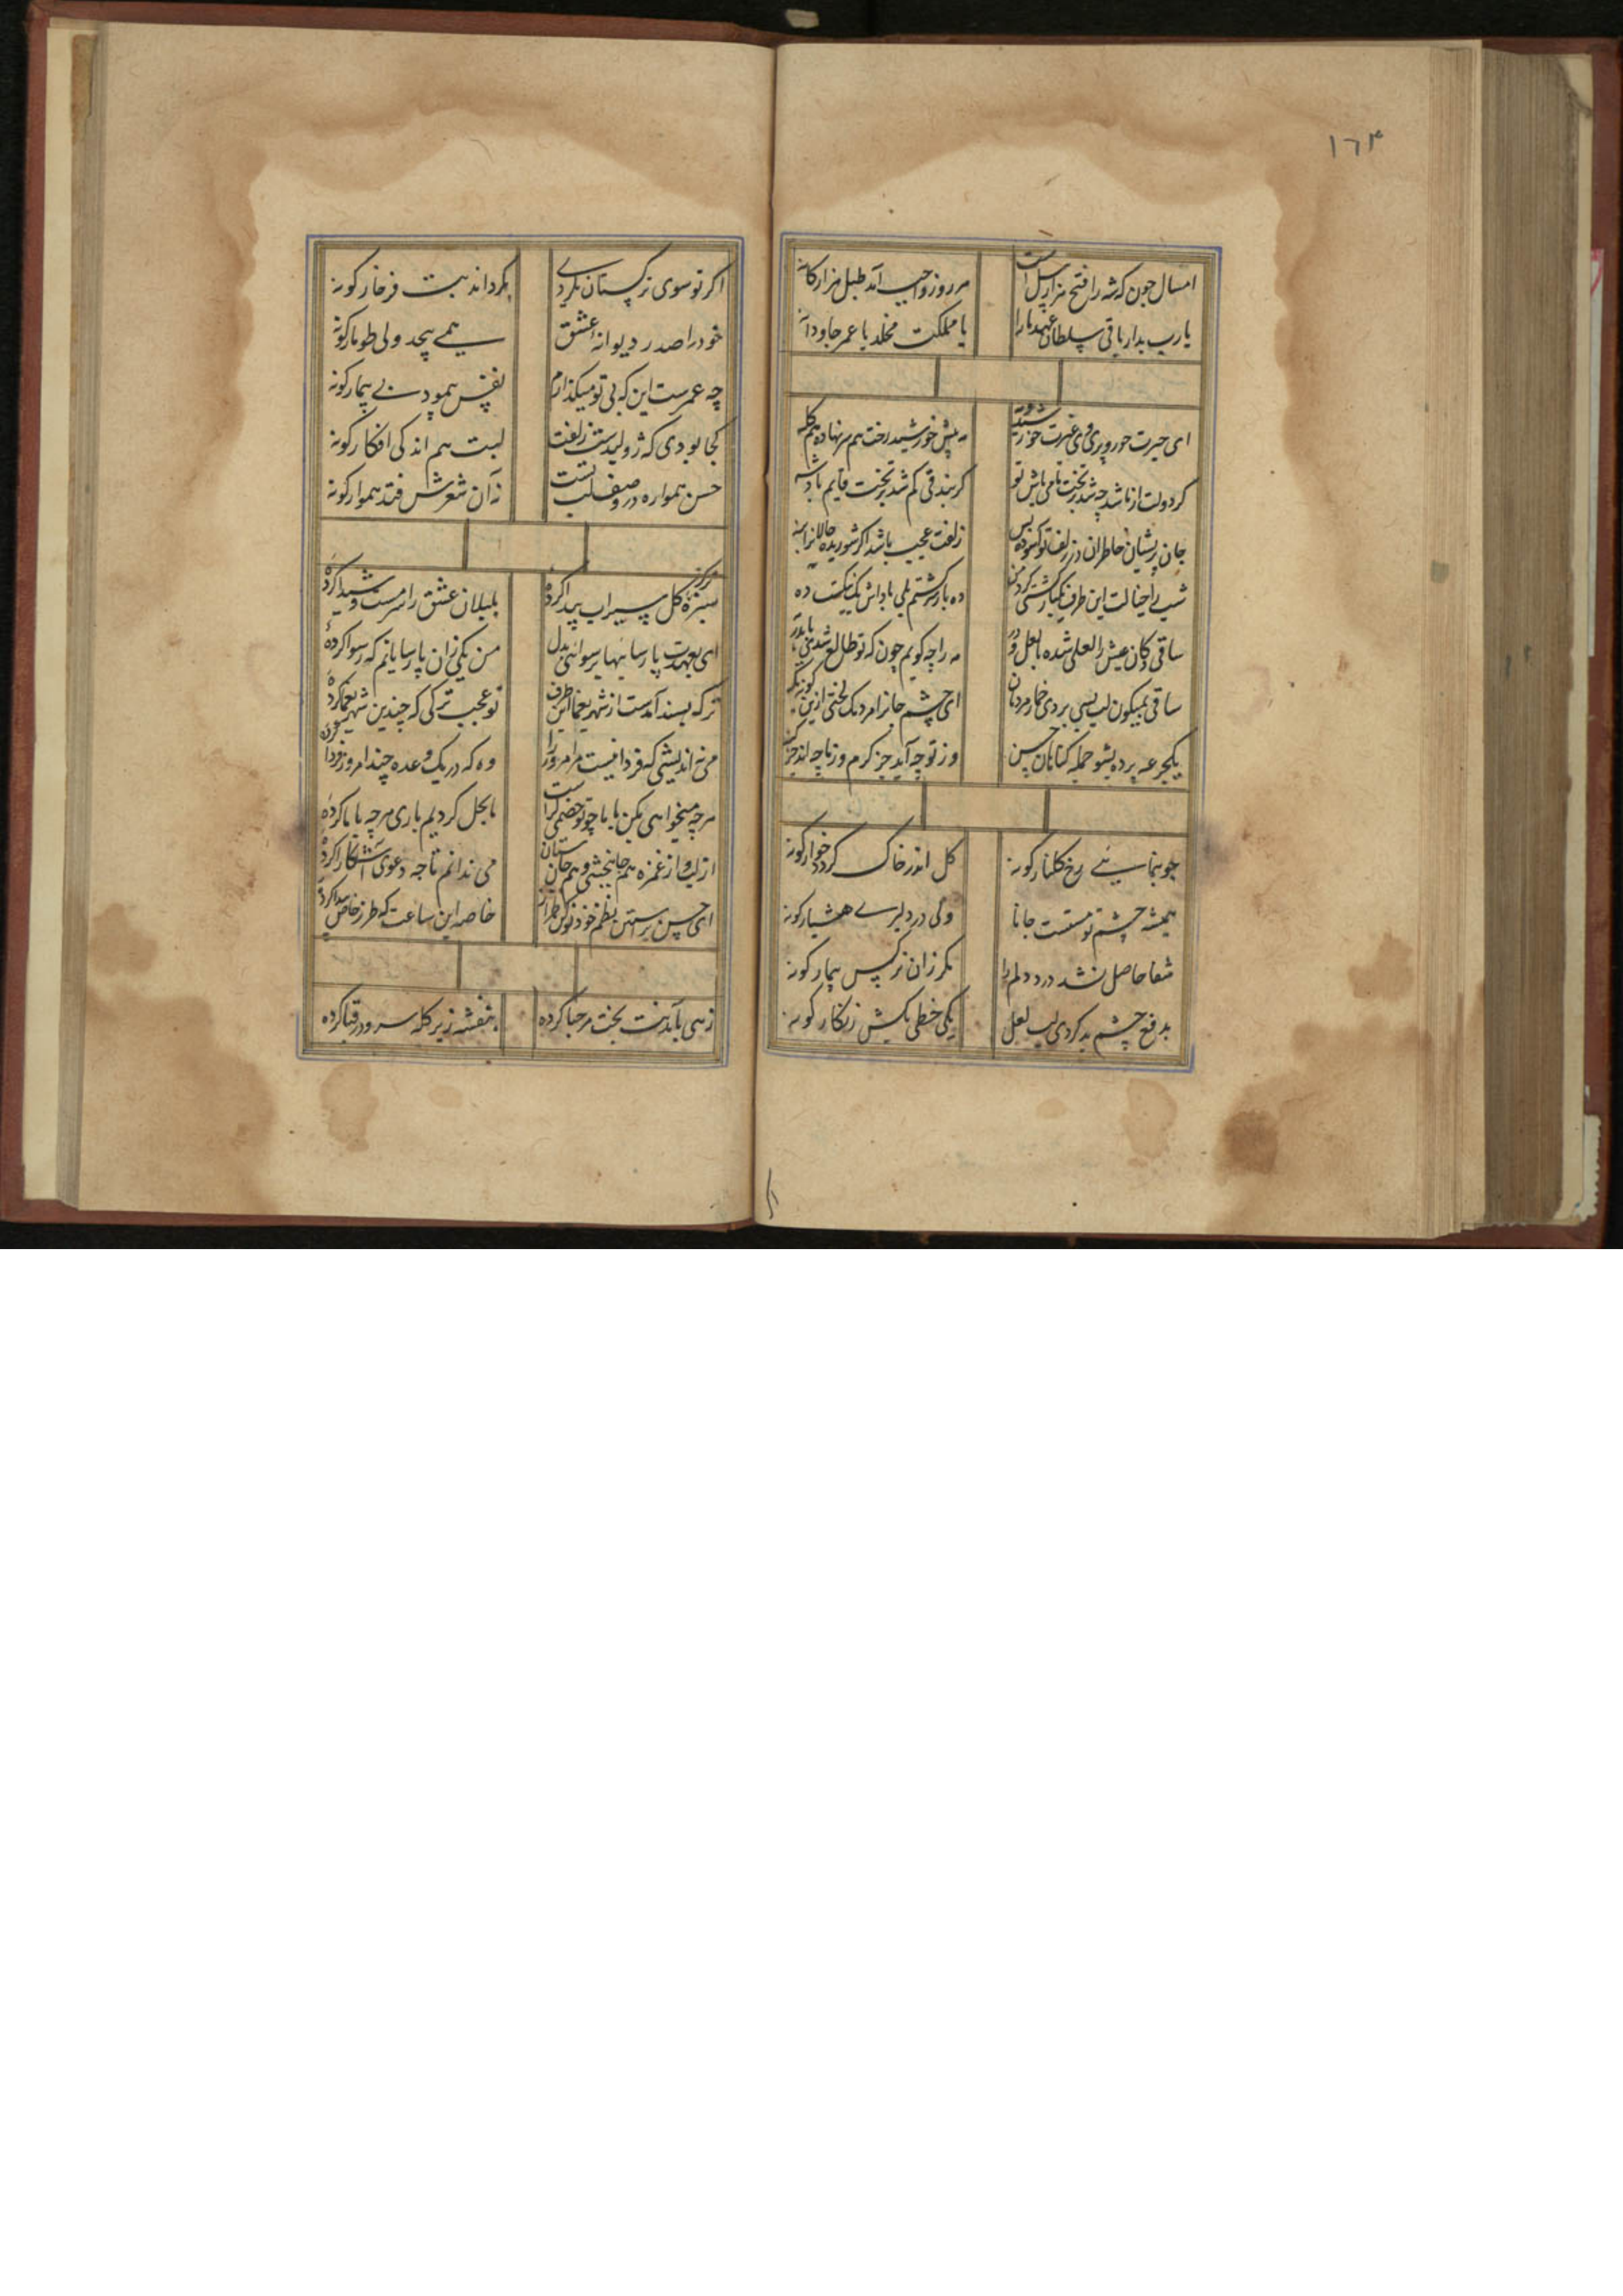 ۱٦۴
امسال چون که شه را فتح هزار پیل است هر روز واجب آمد طبل هزارکانه
یارب بدار باقی سلطان عهد ما را با مملکت مخلد با عمر جاودانه
ای حیرت حور و پری وی غیرت خورشید و مه پیش خورشید رخت هم سر نهاده هم کله
کر دولت از ما شد چه شد بر تخت نامی باش تو کر بندقی کم شد بر تخت قایم باد شه
جان پریشان خاطران در زلف تو آسوده بس زلفت عجب باشد اکر شوریده حالانرا بنه
شب را خیالت این طرف یکبار کشتی کرد من ده بار کشتم بلی پاداش یک نیکیست ده
ساقی دکان عیش را لعلی شده با لعل و در مه را چه کویم چون که تو طالع شدی
ساقی بمیکون لب بسی بردی خمار مردمان ای چشم جانرا مردمک لختی ازین کوزه نکر
یکجرعه برده بشو جمله کناهان حسن وز تو چه آید جز کرم وز ما چه آید جز کنه
چو بنمایی رخ کلنار کونه کل اندر خاک کردد خوار کونه
همیشه چشم تو مستست جانا ولی در دلبری هشیار کونه
شفا حاصل نشد درد دلم را مکر زان نرکس بیمار کونه
بدفع چشم بد کردی لب لعل یکی خطی بکش زنکار کونه
اکر تو سوی ترکستان بکردی بکرداند بتت فرخار کونه
خود را صدر دیوانه عشق همی پیچد ولی طومار کونه
چه عمرست این که بی تو میکذارم نفس بیمودنی بیمار کونه
کجا بودی که ژولیدست زلفت لبت هم اندکی افکار کونه
حسن همواره در وصف لب تست نه آن شعرش فتد هموار کونه
سبزه کرد کل سیراب پیدا کردهٔ بلبلان عشق را سرمست و شیدا کردهٔ
ای بعهدت پارسائیها برسوائی بدل من یکی زان پارسایانم که رسوا کردهٔ
ترک بسند آمدست از شهر یغما این طرف تو عجب ترکی که چندین شهر یغما کردهٔ
می نه اندیشی که فردا نیست مر امروز را وه که در یک وعده چند امروز فردا کردهٔ
هر چه میخواهی بکن با ما چو تو خصمی کراست ما بحل کردیم باری هر چه با ما کردهٔ
از لب و از غمزه هم جانبخشی و هم جان ستان می ندانم تا چه دعوی آشکارا کردهٔ
ای حسن نظم خود نوکن طراز خاصه این ساعت که طرز خاص پیدا کردهٔ
زهی بآمدنت بخت مرحبا کرده بنفشه زیر کله سرو در قبا کرده